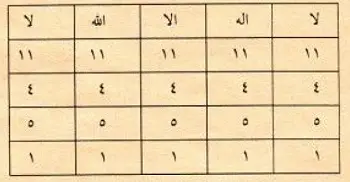 لا اله الا الله لا
١١ ١١ ١١ ١١ ١١
٤ ٤ ٤ ٤ ٤
٥ ٥ ٥ ٥ ٥
١ ١ ١ ١ ١